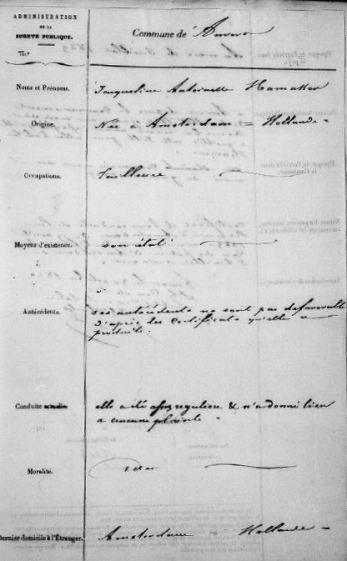 ADMINISTRATION
DE LA
SURETÉ PUBLIQUE.
Commune de Anvers
Noms et Prénoms. Jacqueline Antoinette Hamakker
Origine. Née à Amsterdam = Hollande =
Occupations. Tailleuse
Moyens d'existence. son état
Antécédents. ses antécédents ne sont pas défavorables
d'après les certificats qu'elle a
produits.
Conduite actuelle. elle a été assez régulière & n'a donné lieu
a aucune plainte
Moralité. idem
Dernier domicile à l'Étranger. Amsterdam = Hollande =